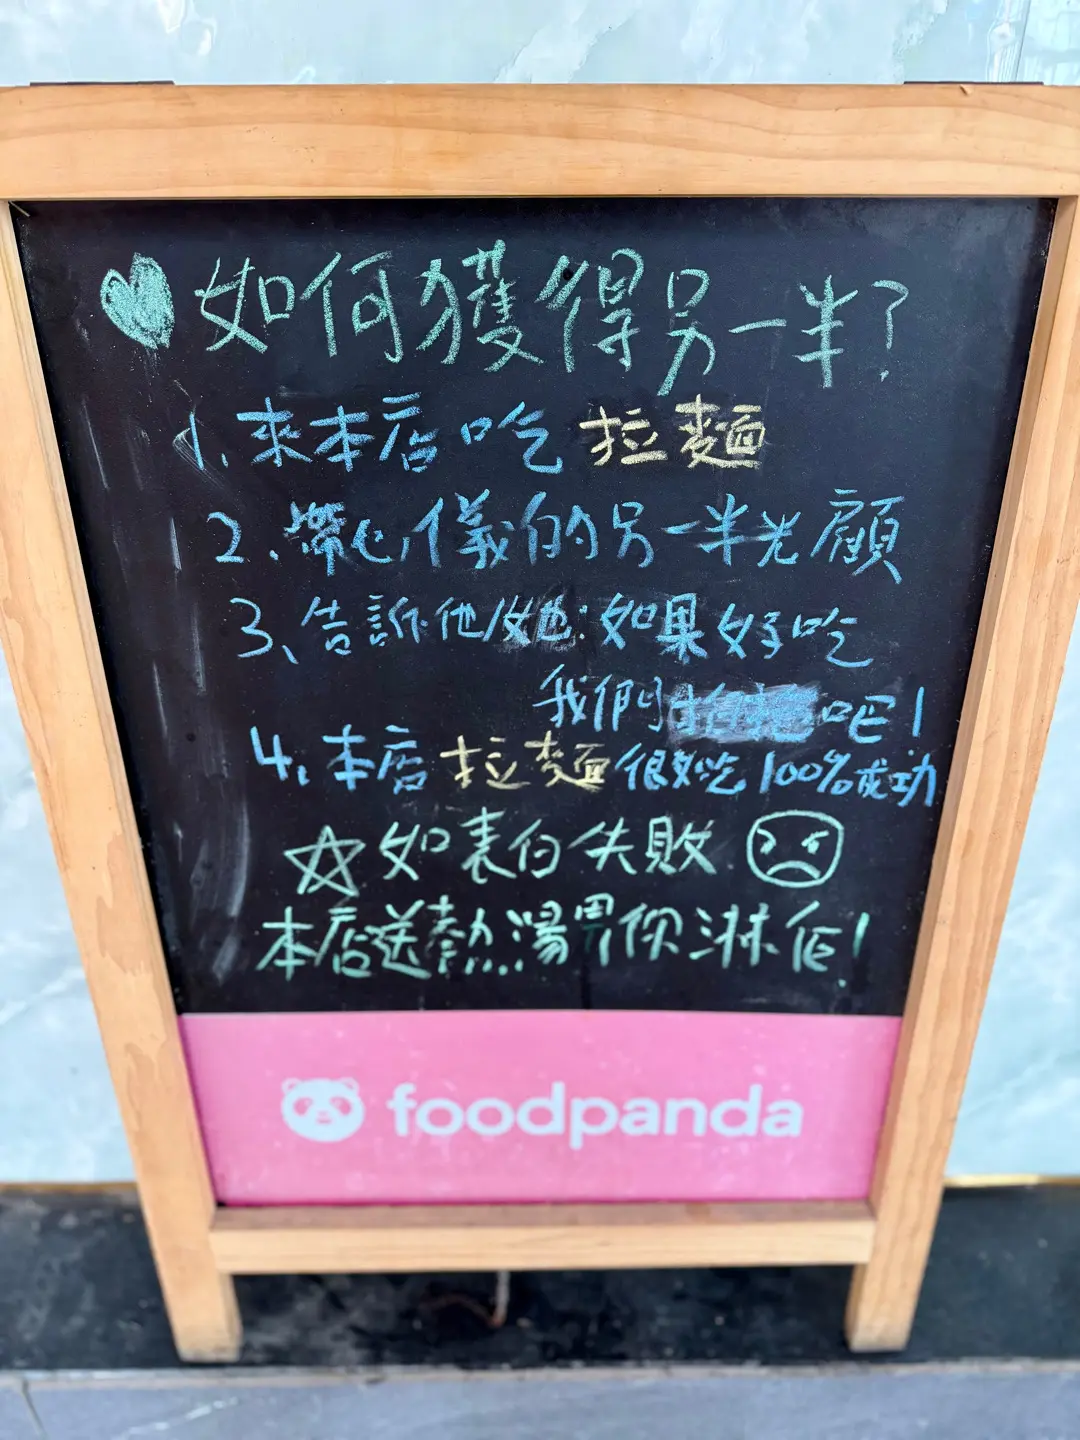 如何獲得另一半?
1.來本店吃拉麵
2、帶心儀的另一半光顧
3、告訴他/她:如果好吃
我們 吧!
4、本店拉麵很好吃100%成功
如表白失敗
本店送熱湯畀你淋佢!
foodpanda